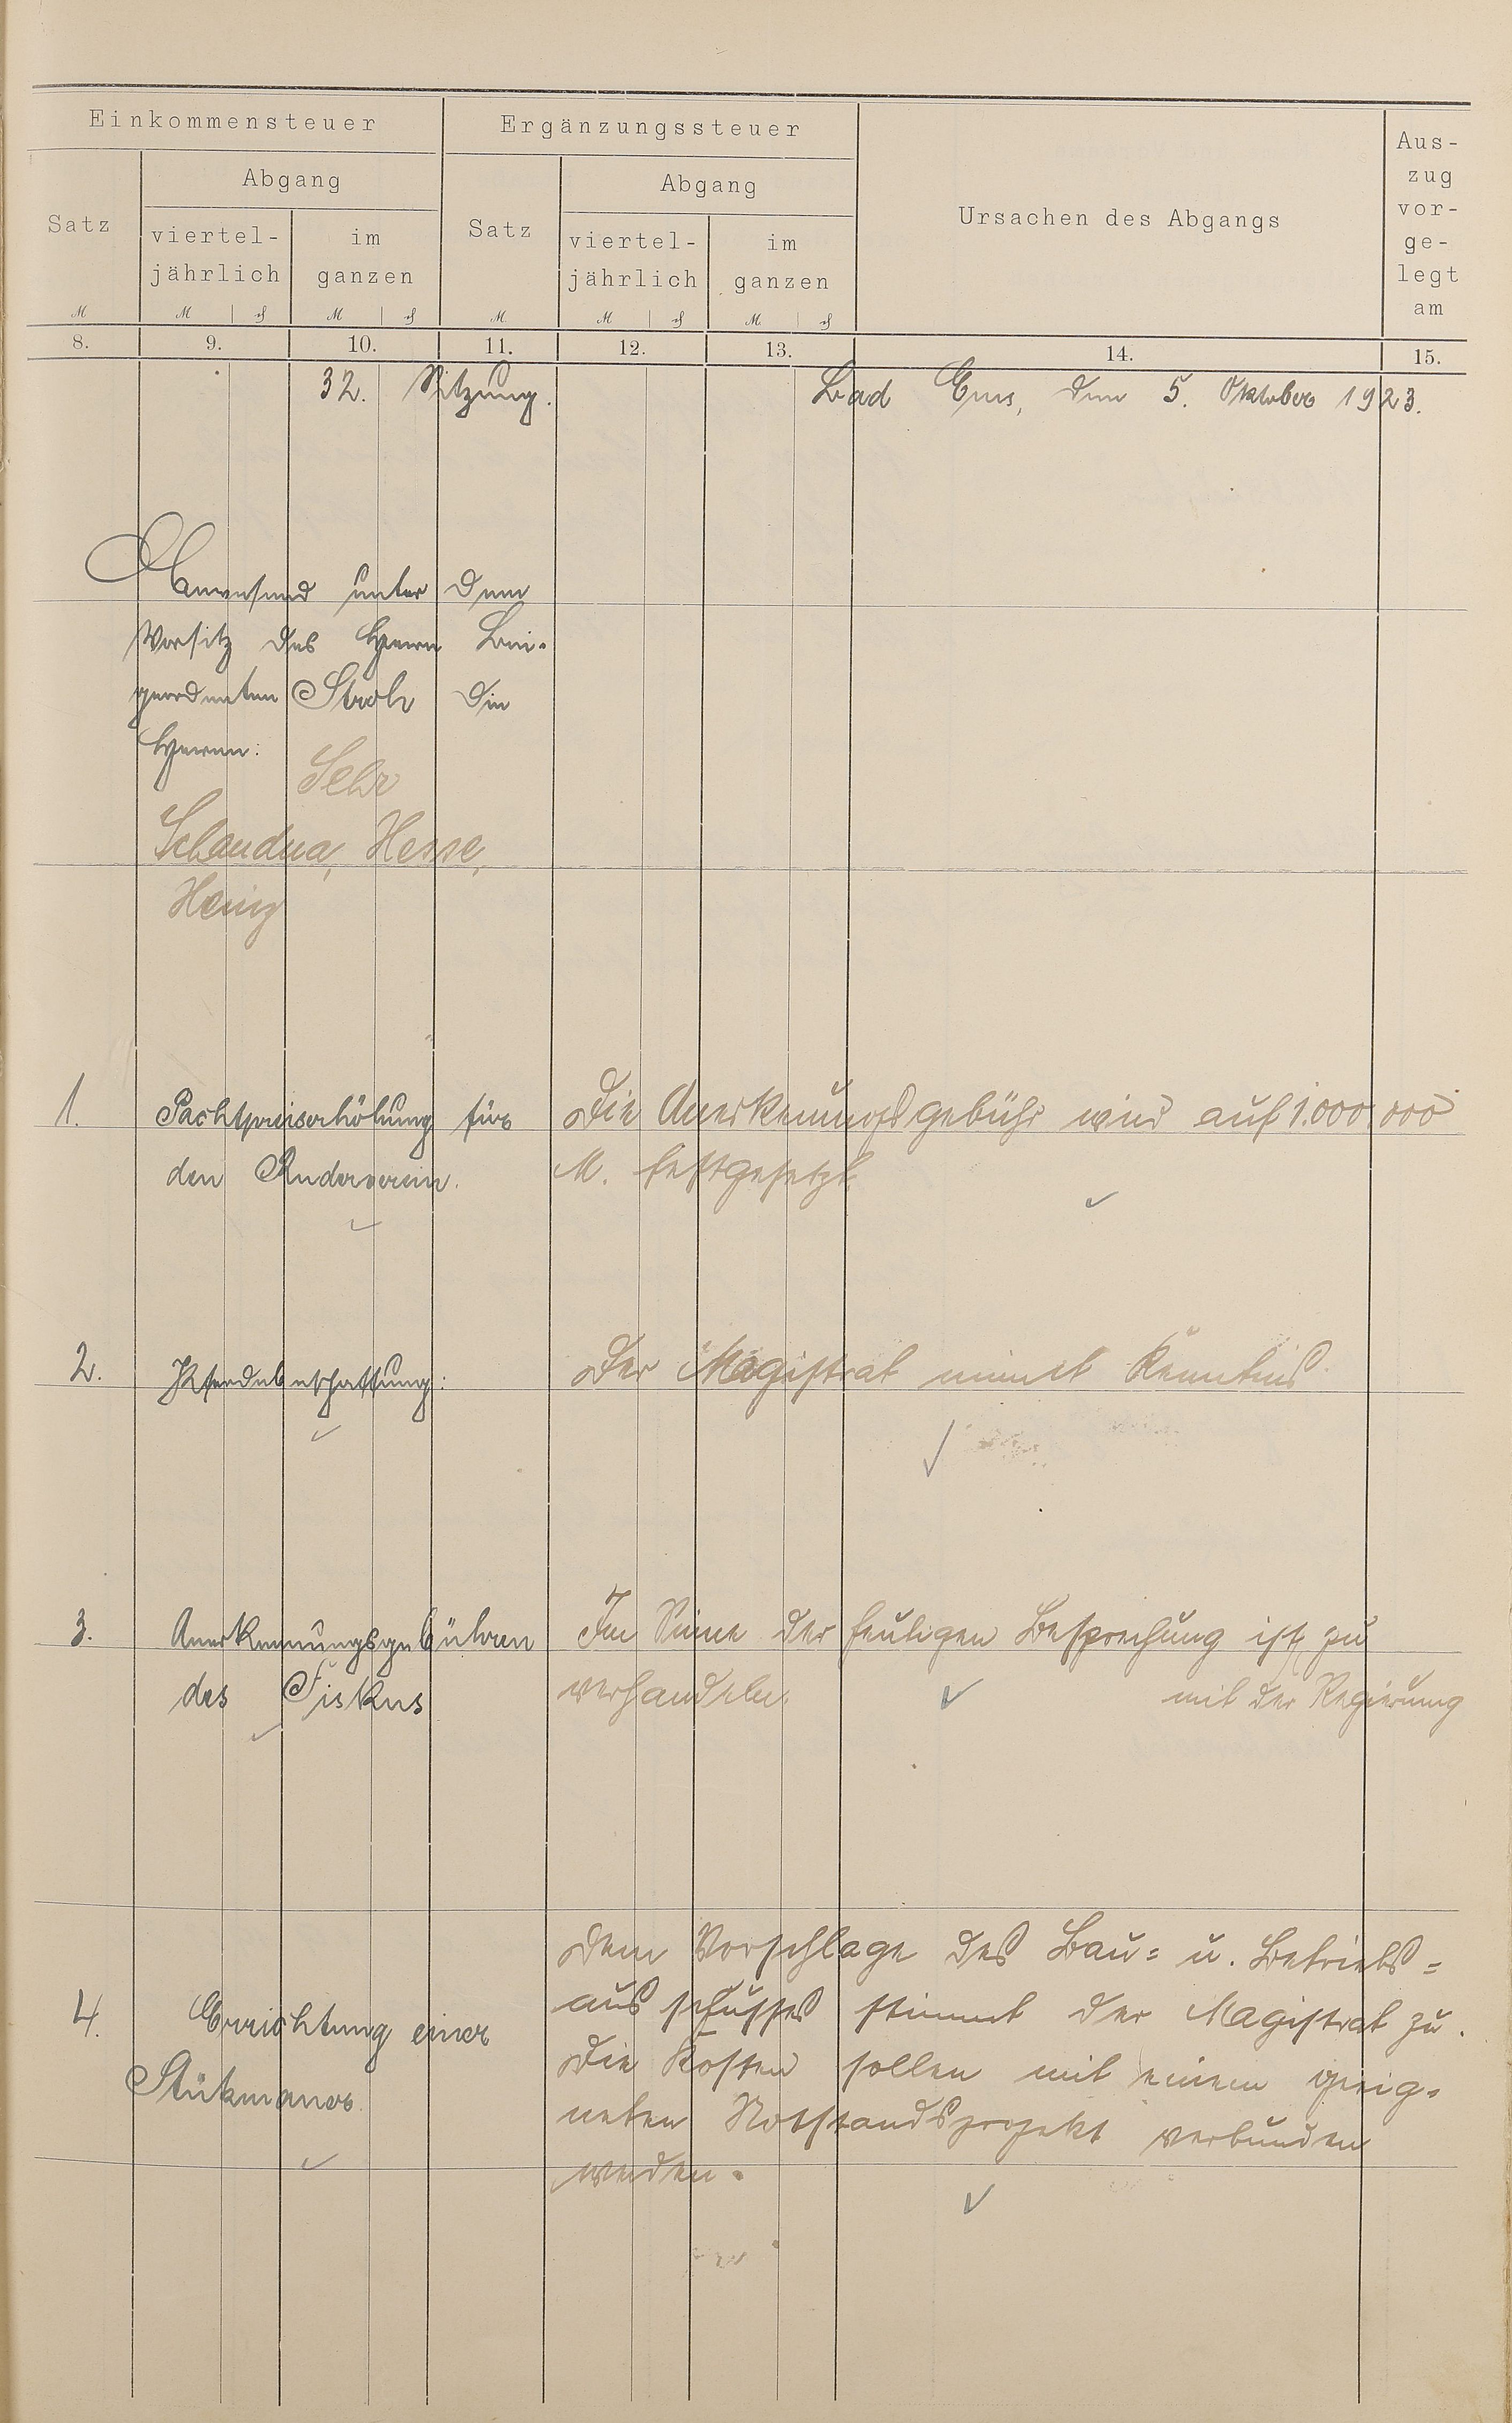 Einkommensteuer
Ergänzungssteuer
Ursachen des Abgangs
Aus-
zug
vor-
ge-
legt
am
Satz
Abgang
viertel-
jährlich
im
ganzen
Satz
Abgang
viertel-
jährlich
im
ganzen
M
M
M
M
M
M
8. 9. 10. 11. 12. 13. 14. 15.
32. Sitzung. Bad Ems, den 5. Oktober 1923.
Anwesend unter dem
Vorsitz des Herrn Bei-
geordneten Stroh die
Herren:
Hesse,
Heinz
1. Pachtpreiserhöhung für
den Ruderverein.
Die Anerkennungsgebühr wird auf 1.000.000
M. festgesetzt.
2. Pferdebeschaffung:
Der Magistrat nimmt Kenntnis.
3. Anerkennungsgebühren
des Fiskus
Im Sinne der heutigen Besprechung ist zu
verhandeln. mit der Regierung
4. Errichtung einer
Stützmauer.
Dem Vorschlage des Bau= u. Betriebs=
ausschusses stimmt der Magistrat zu.
Die Kosten sollen mit einem geeig-
neten Notstandsprojekt verbunden
werden.